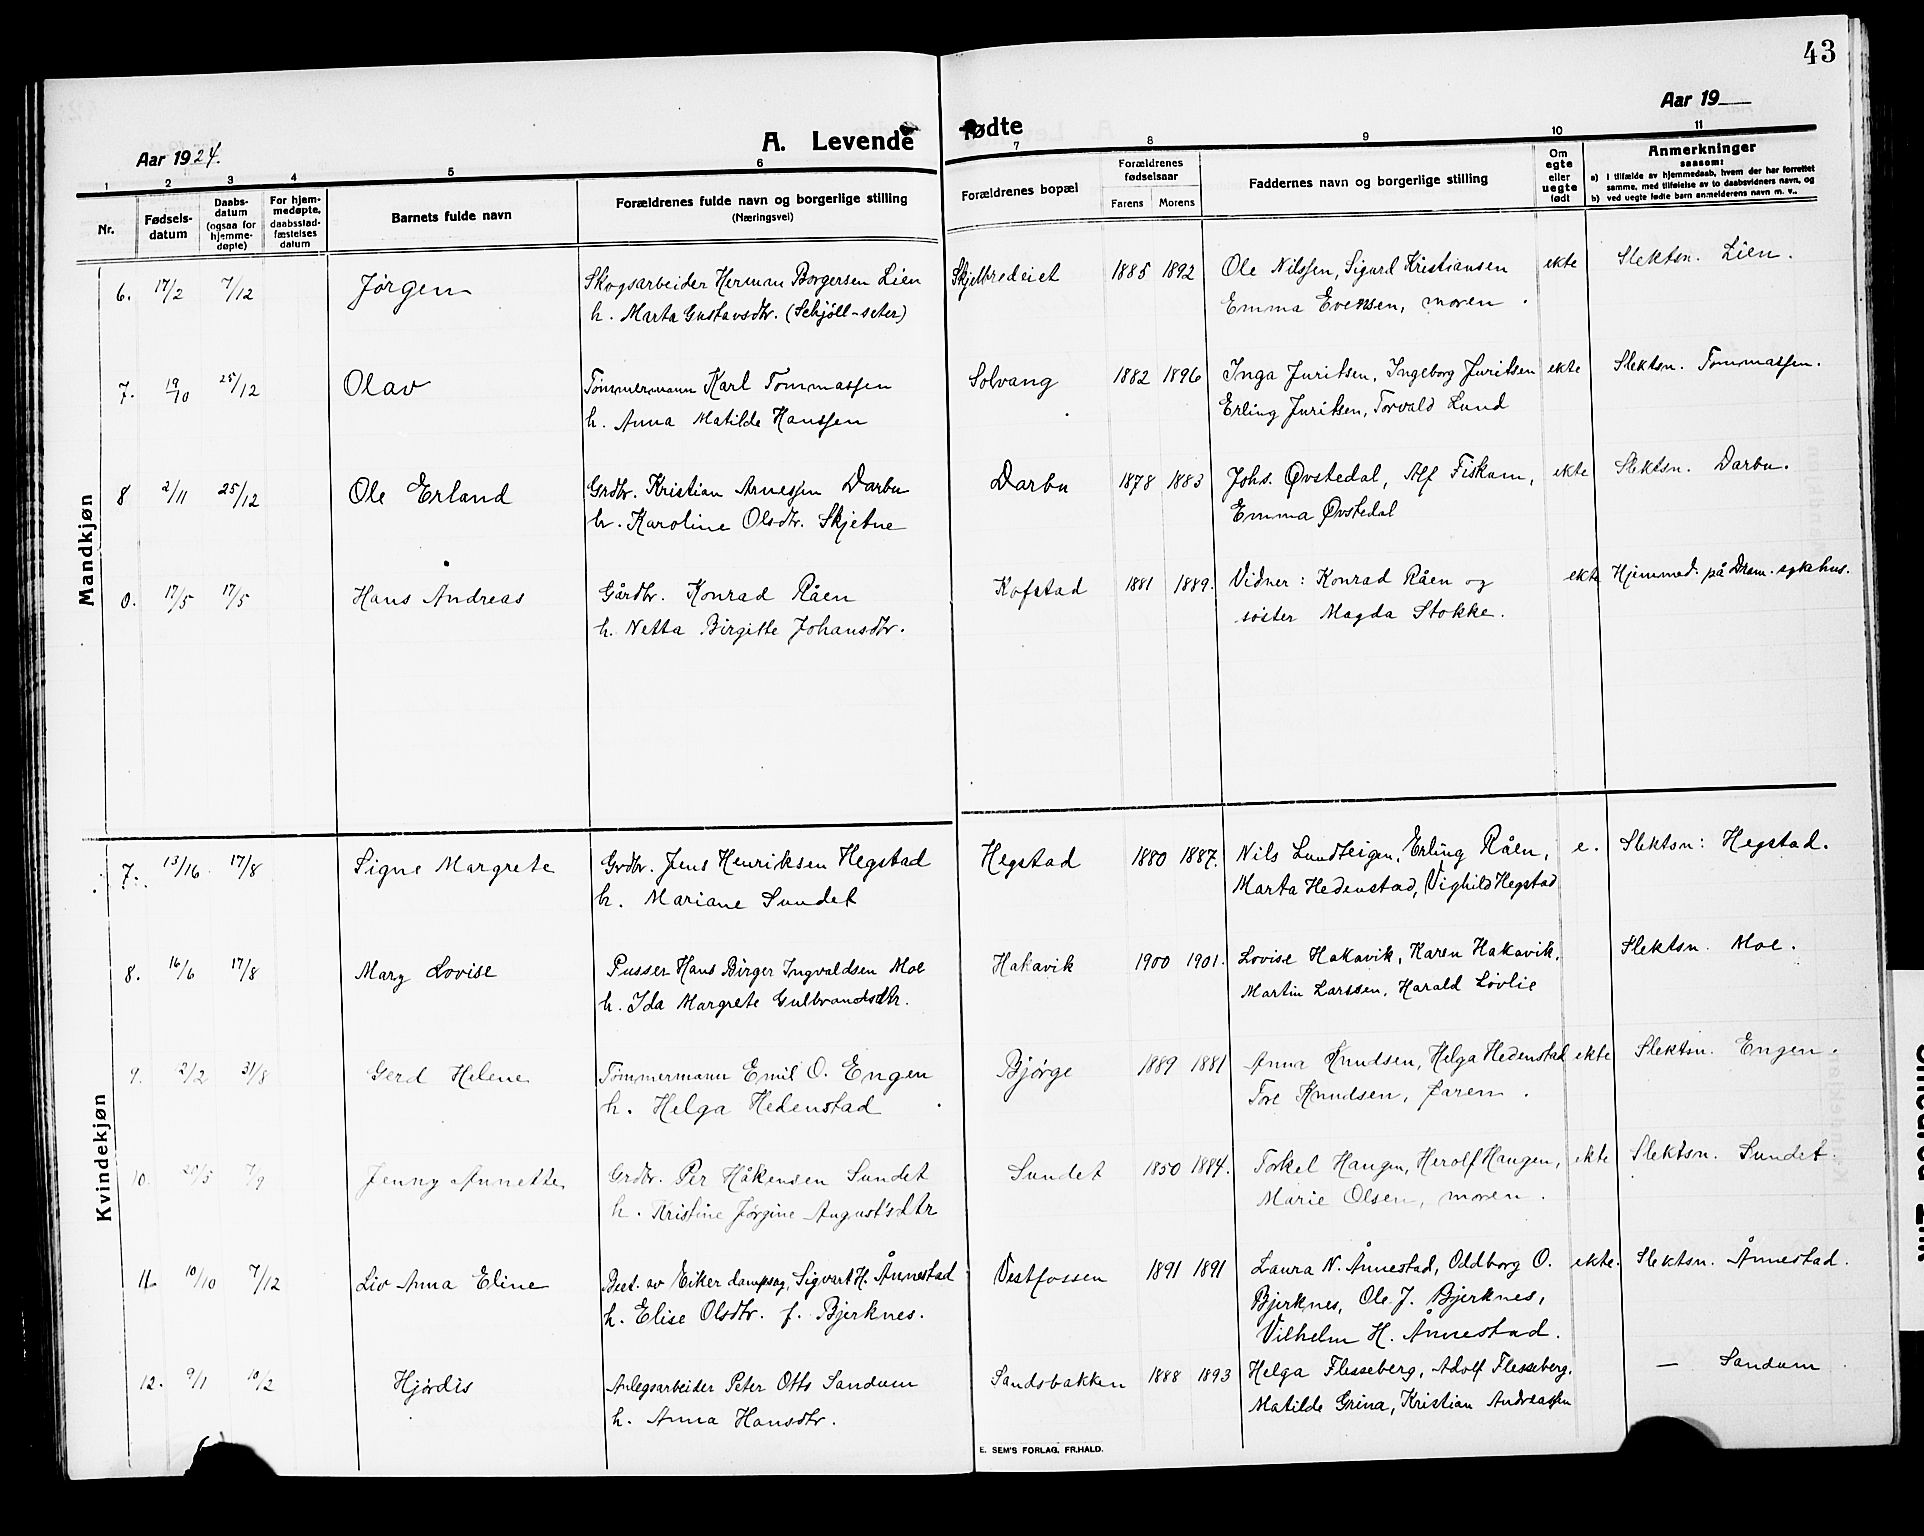 43
Aar 1924.
A. Levende
fødte
Aar 19
1 2 3 4 5 6 7 8 9 10 11
Nr.
Fødsels-datum
Daabs-datum (ogsaa for hjemme-døpte)
For hjem-medøpte, daabsstad-fæstelses datum
Barnets fulde navn
Forældrenes fulde navn og borgerlige stilling
(Næringsvei)
Forældrenes bopæl
Forældrenes fødselsaar
Farens Morens
Faddernes navn og borgerlige stilling
Om egte eller uegte født
Anmerkninger
saasom:
a) I tilfælde av hjemmedaab, hvem der har forrettet samme, med tilføielse av to daabsvidners navn, og
b) ved uegte fødte barn anmelderens navn m. v..
Mandkjøn
6. 17/2 7/12 Jørgen Skogsarbeider Herman Borgersen Lien Skjelbredeiet 1885 1892 Ole Nilssen, Sigurd Kristiansen ekte Slektsn. Lien.
h. Marta Gustavsdtr. (Schjöll-seter) Emma Evensen, moren.
7. 19/10 25/12 Olav Tømmermann Karl Tommassen Solvang 1882 1896 Inga Juritsen, Ingeborg Juritsen ekte Slektsn. Tommassen.
h. Anna Matilde Hanssen Erling Juritsen, Torvald Lund
8 2/11 25/12 Ole Erland Grdbr. Kristian Arnessen Darbu Darbu 1878 1883 Johs. Øvstedal, Alf Fiskum, ekte Slektsn. Darbu.
h. Karoline Olsdtr. Skjetne Emma Øvstedal
0. 17/5 17/5 Hans Andreas Gårdbr. Konrad Råen Kofstad 1881 1889. Vidner: Konrad Råen og ekte Hjemmed. på Dram. sykehus.
h. Netta Birgitte Johansdtr. søster Magda Stokke.
Kvindekjøn
7. 13/16 17/8 Signe Margrete Grdbr. Jens Henriksen Hegstad Hegstad 1880 1887. Nils Lundteigen, Erling Råen, e. Slektsn: Hegstad.
h. Mariane Sundet Marta Hedenstad, Vighild Hegstad
8. 16/6 17/8 Mary Lovise Pusser Hans Birger Ingvaldsen Moe Hakavik 1900 1901. Lovise Hakavik, Karen Hakavik, Slektsn. Moe.
h. Ida Margrete Gulbrandsdtr. Martin Larssen, Harald Lövlie
9. 2/2 31/8 Gerd Helene Tømmermann Emil O. Engen Bjørge 1889 1881 Anna Knudsen, Helga Hedenstad ekte Slektsn. Engen.
h. Helga Hedenstad Tore Knudsen, faren.
10. 20/5 7/9 Jenny Annette Grdbr. Per Håkensen Sundet Sundet 1850 1884. Torkel Haugen, Herolf Haugen, ekte Slektsn. Sundet.
h. Kristine Jørgine August'sdtr Marie Olsen, moren.
11. 10/10 7/12 Liv Anna Eline Best. av Eiker dampsag, Sigvart H. Ånnestad Vestfossen 1891 1891 Laura N. Ånnestad, Oldborg O. ekte. Slektsn. Ånnestad.
h. Elise Olsdtr. f. Bjerknes. Bjerknes, Ole J. Bjerknes,
Vilhelm H. Ånnestad.
12. 9/1 10/2 Hjørdis Anlegsarbeider Peter Otts Sandum Sandsbakken 1888 1893 Helga Flesseberg, Adolf Flesseberg, — Sandum
h. Anna Hansdtr. Matilde Grina, Kristian Andreassen
E. SEM'S FORLAG, FR.HALD.